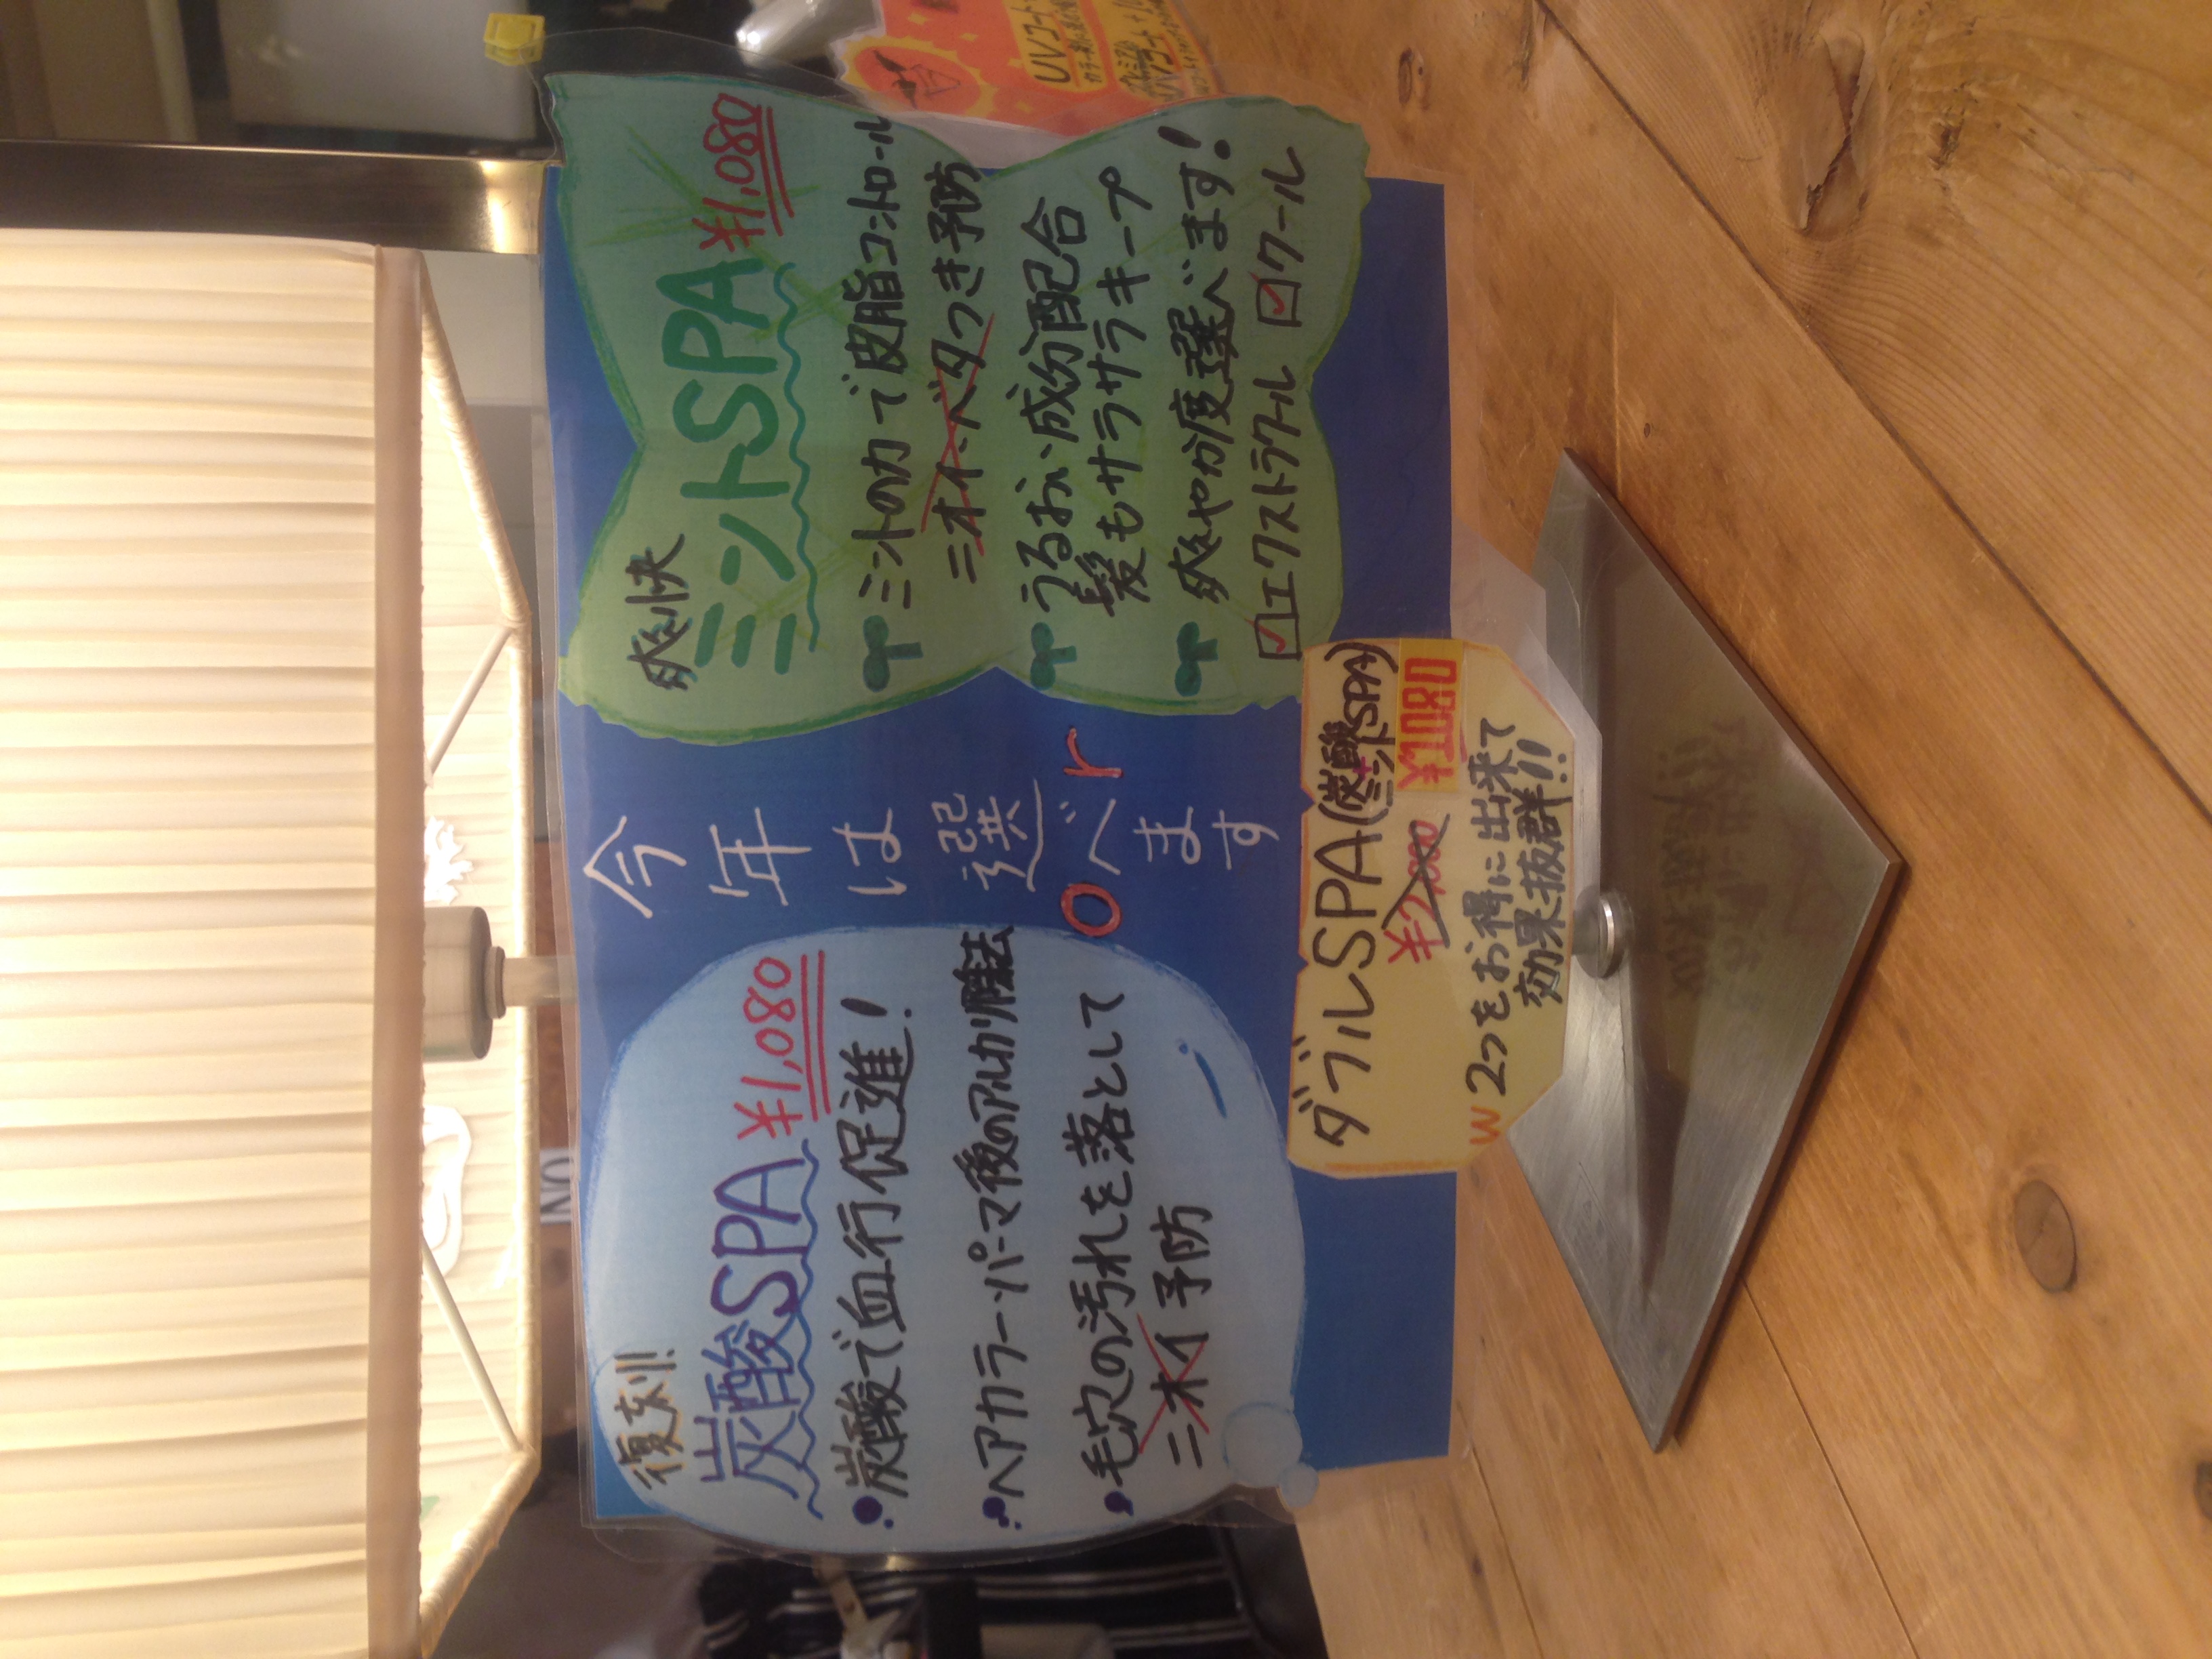 復刻!!
炭酸SPA ¥1,080
炭酸で血行促進!
ヘアカラー・パーマ後のアルカリ除去
毛穴の汚れを落として
ニオイ予防
今年は選べます
or
爽快
ミントSPA ¥1,080
ミントの力で皮脂コントロール
ニオイ・ベタつき予防
うるおい成分配合
髪もサラサラキープ
爽やか度選べます!
エクストラクール クール
ダブルSPA(炭酸+ミントSPA)
¥2,000 ¥1080
W 2つをお得に出来て
効果抜群!!
UVコート
NO